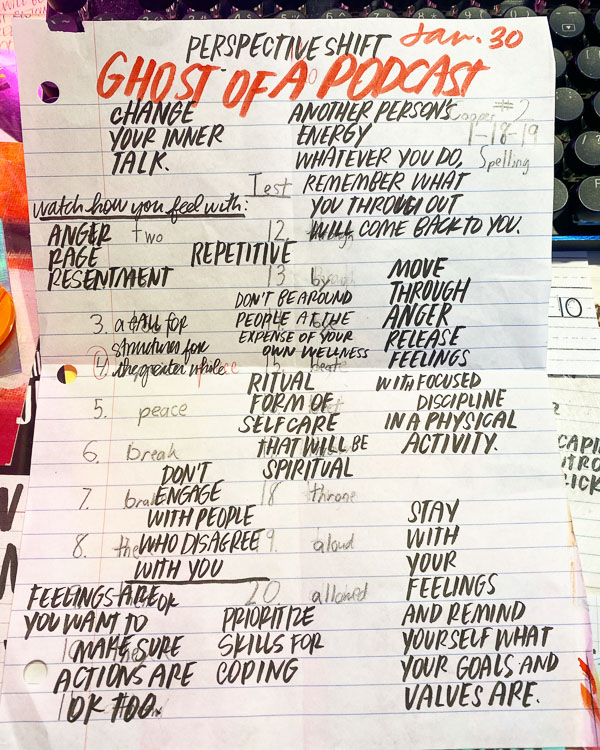 PERSPECTIVE SHIFT
Jan. 30
GHOST OF A PODCAST
CHANGE
YOUR INNER
TALK.
ANOTHER PERSON'S
ENERGY
WHATEVER YOU DO,
REMEMBER WHAT
YOU THROUGH OUT
WILL COME BACK TO YOU.
Cooper #2
1-18-19
Spelling
Test
watch how you feel with:
ANGER
RAGE
RESENTMENT
REPETITIVE
two
12.
13
DON'T BE AROUND
PEOPLE AT THE
EXPENSE OF YOUR
OWN WELLNESS
MOVE
THROUGH
ANGER
RELEASE
FEELINGS
WITH FOCUSED
DISCIPLINE
IN A PHYSICAL
ACTIVITY.
3. a call for
structures for
4 the greater whole
RITUAL
FORM OF
SELF CARE
THAT WILL BE
SPIRITUAL
5. peace
6. break
7.
8.
18 throne
9. aloud
20 allowed
DON'T
ENGAGE
WITH PEOPLE
WHO DISAGREE
WITH YOU
STAY
WITH
YOUR
FEELINGS
AND REMIND
YOURSELF WHAT
YOUR GOALS AND
VALUES ARE.
FEELINGS ARE OK
YOU WANT TO
MAKE SURE
ACTIONS ARE
OK TOO.
PRIORITIZE
SKILLS FOR
COPING
10